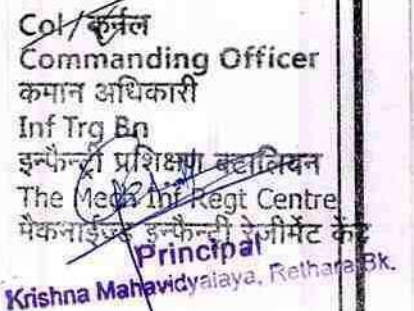 Col/कर्नल
Commanding Officer
कमान अधिकारी
Inf Trg Bn
इन्फैन्ट्री प्रशिक्षण बटालियन
The Mech Inf Regt Centre
मैकनाईज्ड इन्फैन्ट्री रेजीमेंट केंद्र
Principal
Krishna Mahavidyalaya, Rethara Bk.